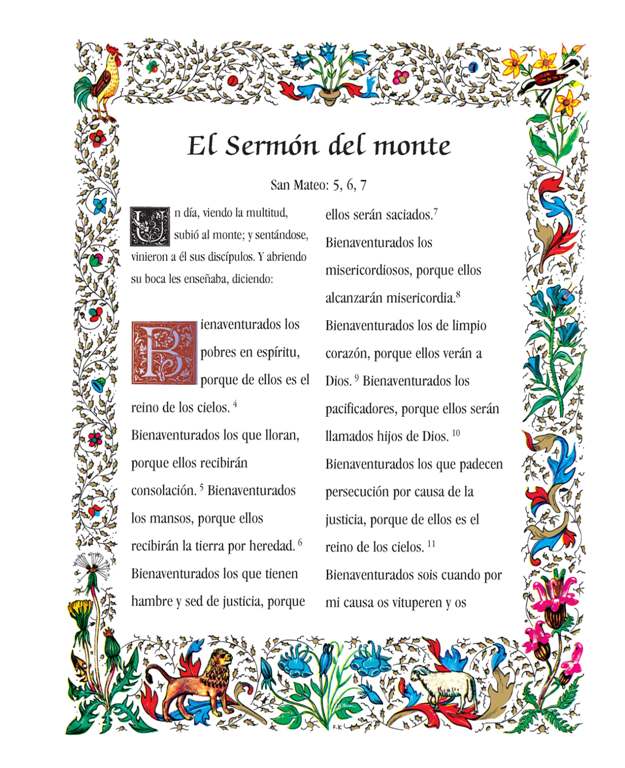 El Sermón del monte
San Mateo: 5, 6, 7
Un día, viendo la multitud,
subió al monte; y sentándose,
vinieron a él sus discípulos. Y abriendo
su boca les enseñaba, diciendo:
Bienaventurados los
pobres en espíritu,
porque de ellos es el
reino de los cielos. 4
Bienaventurados los que lloran,
porque ellos recibirán
consolación. 5 Bienaventurados
los mansos, porque ellos
recibirán la tierra por heredad. 6
Bienaventurados los que tienen
hambre y sed de justicia, porque
ellos serán saciados.7
Bienaventurados los
misericordiosos, porque ellos
alcanzarán misericordia.8
Bienaventurados los de limpio
corazón, porque ellos verán a
Dios. 9 Bienaventurados los
pacificadores, porque ellos serán
llamados hijos de Dios. 10
Bienaventurados los que padecen
persecución por causa de la
justicia, porque de ellos es el
reino de los cielos. 11
Bienaventurados sois cuando por
mi causa os vituperen y os